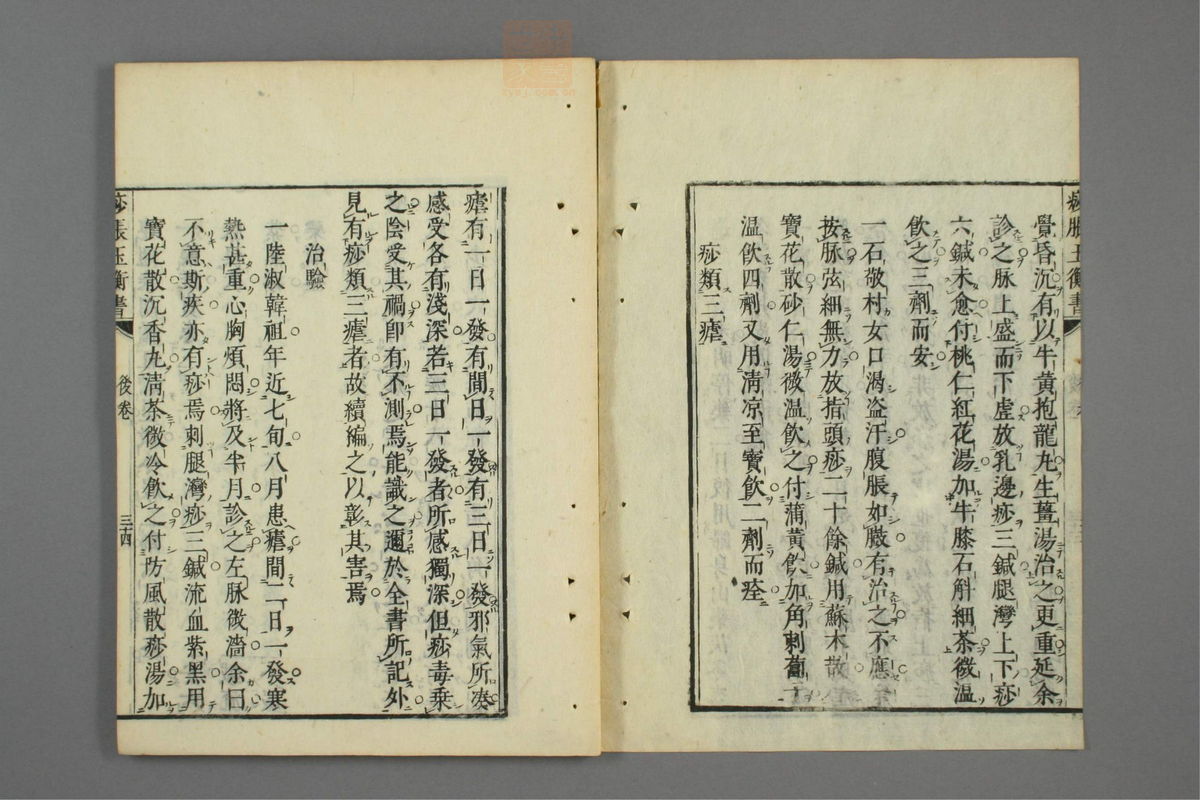 覺昏沉有以牛黃抱龍丸生薑湯治之更重延余
診之脉上盛而下虛放乳邊痧三鍼腿灣上下痧
六鍼未愈付桃仁紅花湯加牛膝石斛細茶微温
飲之三劑而安
一石敬村女口渴盗汗腹脹如臌有治之不應
按脉弦細無力放指頭痧二十餘鍼用蘇木散
寶花散砂仁湯微温飲之付蒲黃飲加角刺蔔子
温飲四劑又用淸凉至寶飲二劑而痊
痧類三瘧
瘧有一日一發有間日一發有三日一發邪氣所凑
感受各有淺深若三日一發者所感獨深但痧毒乗
之陰受其禍卽有不測焉能識之邇於全書所記外
見有痧類三瘧者故續編之以彰其害焉
治驗
一陸淑韓祖年近七旬八月患瘧間二日一發寒
熱甚重心胸煩悶將及半月診之左脉微濇余曰
不意斯疾亦有痧焉刺腿灣痧三鍼流血紫黑用
寶花散沉香丸淸茶微冷飲之付防風散痧湯加
痧脹玉衡書
後卷
三十四